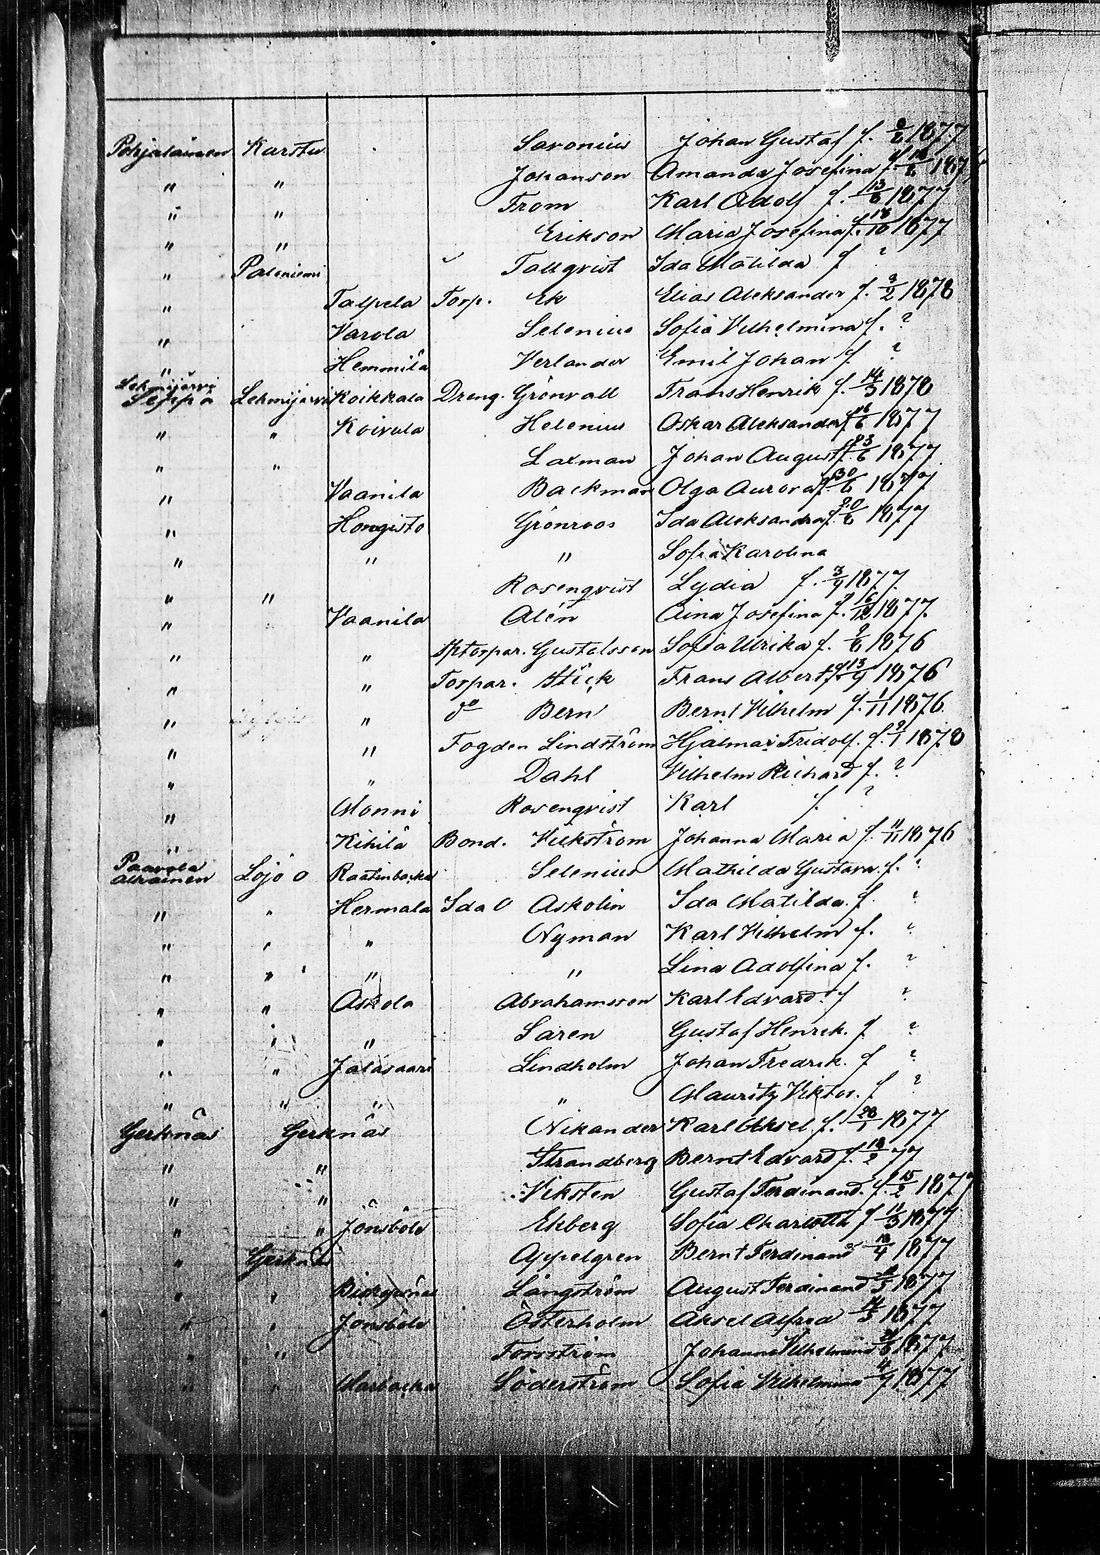 Pohjalainen Karstu Savonius Johan Gustaf f. 9/6 1877
" " Johanson Amanda Josefina f. 1877
" " From Karl Adolf f. 13/6 1877
" " Erikson Maria Josefina f. 18/10 1877
" Paloniemi " Tallqvist Ida Matilda f ?
" Talpela Torp. Ek Elias Aleksander f. 3/2 1878
" Varola Selenius Sofia Vilhelmina f. ?
" Hemmilä Verlander Emil Johan f ?
Lehmijärvi
Seppä Lehmijärvi Koikkala Dreng. Grönvall Frans Henrik f. 14/3 1878
" " Koivula Helenius Oskar Aleksander f 1877
" " Laxman Johan August f. 23/6 1877
" Vaanila Backman Olga Aurora f. 30/6 1877
" Hongisto Grönroos Ida Aleksandra f. 20/6 1877
" " " Sofia Karolina
" " Rosenqvist Lydia f. 3/9 1877
" Vaanila Alén Aina Josefina f. 16/12 1877
" " Sptorpar. Gustafsson Sofia Ulrika f. 9/6 1876
" " Torpar. Stick Frans Albert f. 13/9 1876
" " d:o Bern Bernt Vilhelm f. 1/11 1876
" " Fogden Lindström Hjalmar Fridolf. f. 9/1 1878
" " Dahl Vilhelm Richard f. ?
" Monni Rosenqvist Karl f. ?
" Kihilä Bond. Vickström Johanna Maria f. 11/11 1876
Paavola
Alhainen Lojo O Raatinbacka Selenius Mathilda Gustava f. ?
" " Hermala Ida O Askolin Ida Matilda. f. ?
" " " Nyman Karl Vilhelm f. ?
" " " " Lina Adolfina f. ?
" " Askola Abrahamsson Karl Edvard. f ?
" " " Saren Gustaf Henrik. f ?
" " Jalasaari Lindholm Johan Fredrik. f ?
" " " " Mauritz Viktor. f ?
Gerknäs Gerknäs Nikander Karl Aksel f. 28/1 1877
" " Strandberg Bernt Edvard f. 18/2 77
" " Viksten Gustaf Ferdinand. f. 25/2 1877
" " Jönsböle Ekberg Sofia Charlotta f 11/3 1877
" Gerknäs Appelgren Bernt Ferdinand 18/4 1877
" " Långström August Ferdinand 1877
" " Jönsböle Österholm Aksel Alfred 1877
" " Forsström Johanna Vilhelmina 1877
" " Söderström Sofia Vilhelmina 4/9 1877